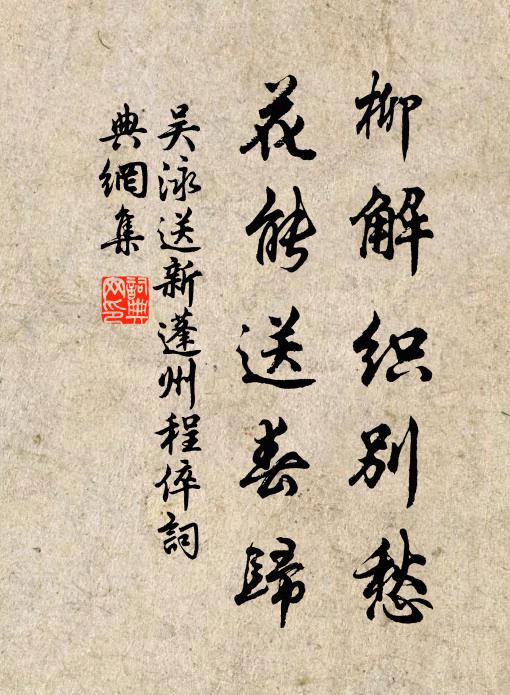 柳解织别愁
花能送春歸
吴泳送新蓬州程倅詞
典網集
詞典
网印